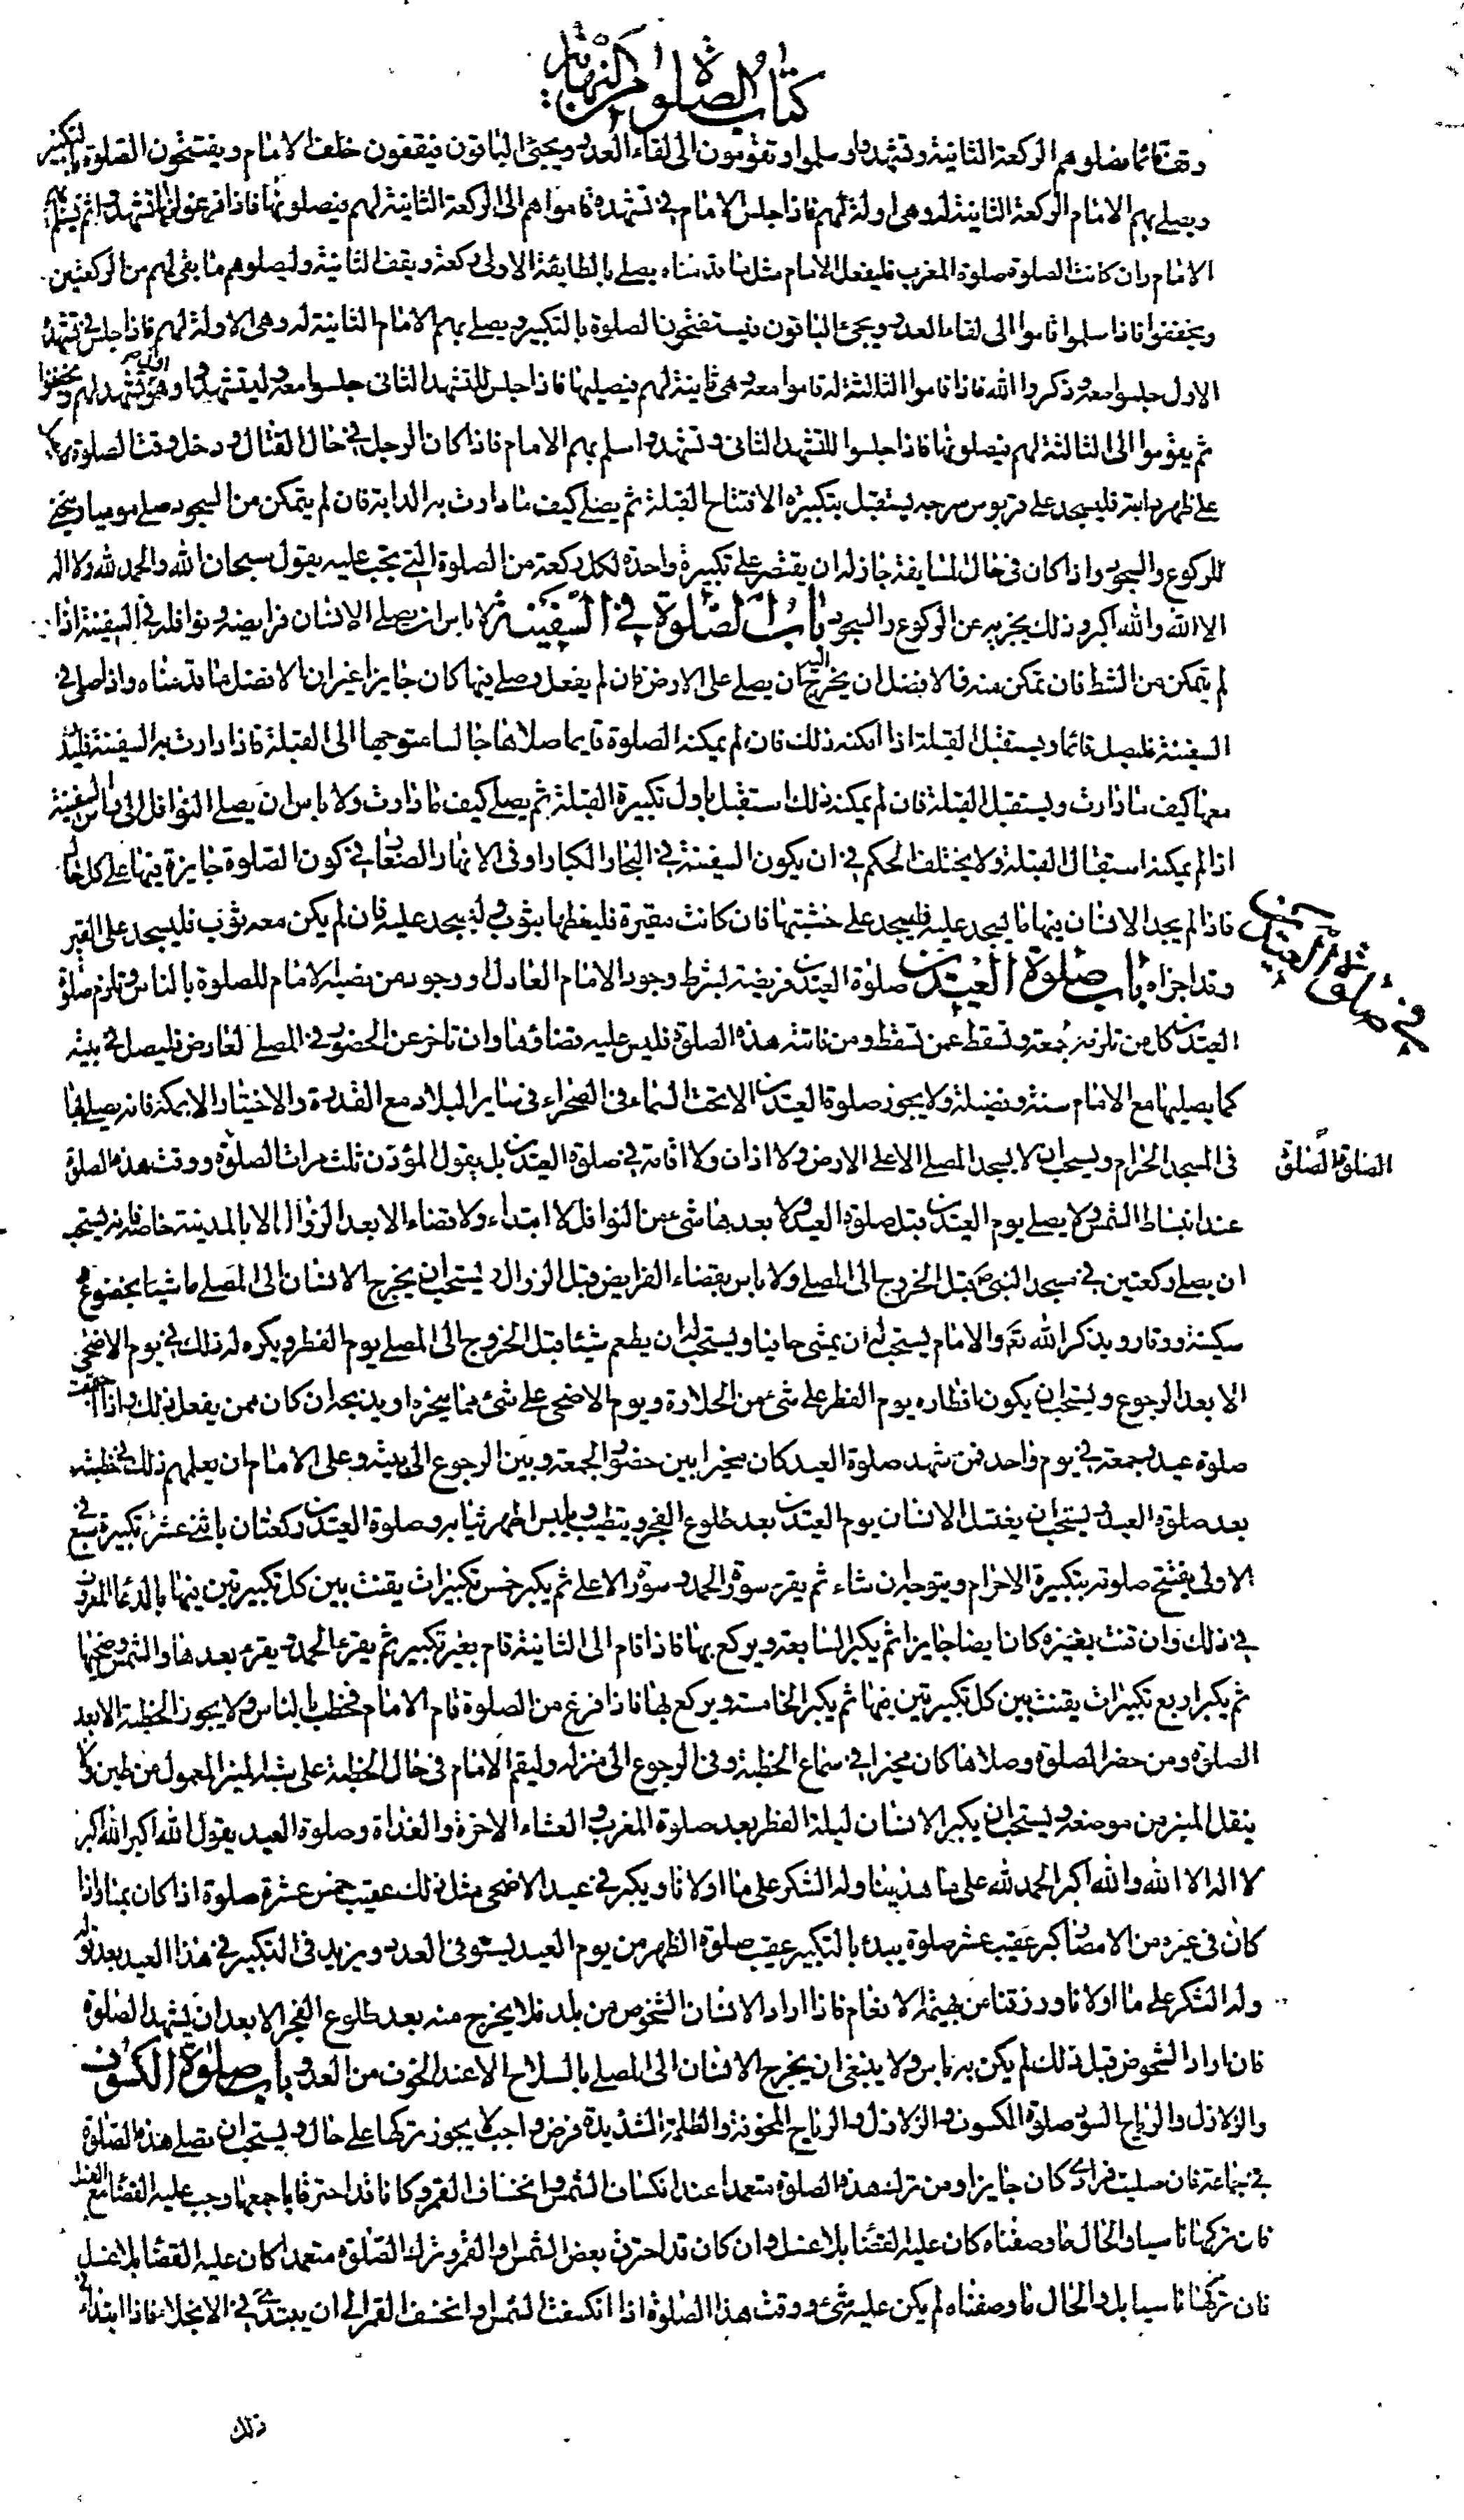 كتاب الصلوة من النهاية
وقف قائما وصلوا هم الركعة الثانية وتشهدوا وسلموا ويقومون الى لقاء العدو ويجئ الباقون فيقفون خلف الامام ويفتتحون الصلوة بالتكبير
ويصلي بهم الامام الركعة الثانية له وهي اولة لهم فاذا جلس الامام في تشهده قاموا هم الى الركعة الثانية لهم فيصلونها فاذا فرغوا منها تشهدوا ثم يسلم بهم
الامام وان كانت الصلوة صلوة المغرب فليفعل الامام مثل ما قدمناه يصلي بالطايفة الاولى ركعة ويقف الثانية وليصلوا هم ما بقي لهم من الركعتين
ويخففوا فاذا سلموا قاموا الى لقاء العدو ويجئ الباقون فيستفتحون الصلوة بالتكبير ويصلي بهم الامام الثانية له وهي الاولة لهم فاذا جلس في تشهده
الاول جلسوا معه وذكروا الله فاذا قام الى الثالثة له قاموا معه وهي ثانية لهم فيصليها فاذا جلس للتشهد الثاني جلسوا معه وليتشهدوا وهو اول تشهد لهم ويخففوا
ثم يقوموا الى الثالثة لهم فيصلونها فاذا جلسوا للتشهد الثاني وتشهدوا سلم بهم الامام فاذا كان الرجل في حال القتال ودخل وقت الصلوة
على ظهر دابته فليسجد على قربوس سرجه يستقبل بتكبيرة الافتتاح القبلة ثم يصلي كيف ما دارت به الدابة فان لم يتمكن من السجود صلى موميا وينحني
للركوع والسجود واذا كان في حال المسايفة جاز له ان يقتصر على تكبيرة واحدة لكل ركعة من الصلوة التي تجب عليه يقول سبحان الله والحمد لله ولا اله
الا الله والله اكبر وذلك يجزيه عن الركوع والسجود باب الصلوة في السفينة لا باس ان يصلي الانسان فرايضه ونوافله في السفينة اذا
لم يتمكن من الشط فان تمكن منه فالافضل ان يخرج اليه وان يصلي على الارض فان لم يفعل وصلى فيها كان جايزا غير ان الافضل ما قدمناه واذا صلى في
السفينة فليصل قائما ويستقبل القبلة اذا امكنه ذلك فان لم يمكنه الصلوة قايما صلاها جالسا متوجها الى القبلة فاذا دارت به السفينة فليدر
معها كيف ما دارت ويستقبل القبلة فان لم يمكنه ذلك استقبل باول تكبيرة القبلة ثم يصلي كيف ما دارت ولا باس ان يصلي النوافل الى راس السفينة
اذا لم يمكنه استقبال القبلة ولا يختلف الحكم في ان يكون السفينة في البحار الكبار او في الانهار الصغار في كون الصلوة جايزة فيها على كل حال
فاذا لم يجد الانسان فيها ما يسجد عليه فليسجد على خشبتها فان كانت مقيرة فليغطها بثوب وليسجد عليه فان لم يكن معه ثوب فليسجد على القير
وقد اجزاه باب صلوة العيدين صلوة العيدين فريضة بشرط وجود الامام العادل او وجود من نصبه الامام للصلوة بالناس وتلزم صلوة
العيدين كل من تلزمه جمعة وتسقط عمن تسقط ومن فاتته هذه الصلوة فليس عليه قضاؤها وان تاخر عن الحضور في المصلى لعارض فليصل في بيته
كما يصليها مع الامام سنة وفضيلة ولا يجوز صلوة العيدين الا تحت السماء في الصحراء في ساير البلاد مع القدرة والاختيار الا بمكة فانه يصلي بها
الصلوة الصلوة
في المسجد الحرام ويستحب ان لا يسجد المصلي الا على الارض ولا اذان ولا اقامة في صلوة العيدين بل يقول المؤذن ثلث مرات الصلوة ووقت هذه الصلوة
عند انبساط الشمس ولا يصلي يوم العيدين قبل صلوة العيد ولا بعدها شئ من النوافل لا ابتداء ولا قضاء الا بعد الزوال الا بالمدينة خاصة فانه يستحب
ان يصلي ركعتين في مسجد النبي ص قبل الخروج الى المصلى ولا باس بقضاء الفرايض قبل الزوال ويستحب ان يخرج الانسان الى المصلى ماشيا بخضوع و
سكينة ووقار ويذكر الله تع والامام يستحب له ان يمشي حافيا ويستحب له ان يطعم شيئا قبل الخروج الى المصلى يوم الفطر ويكره له ذلك في يوم الاضحى
الا بعد الرجوع ويستحب ان يكون افطاره يوم الفطر على شئ من الحلاوة ويوم الاضحى على شئ مما ينحره او يذبحه ان كان ممن يفعل ذلك واذا اجتمعت
صلوة عيد وجمعة في يوم واحد فمن شهد صلوة العيد كان مخيرا بين حضور الجمعة وبين الرجوع الى بيته وعلى الامام ان يعلمهم ذلك في خطبته
بعد صلوة العيد ويستحب ان يغتسل الانسان يوم العيدين بعد طلوع الفجر ويتطيب ويلبس اطهر ثيابه وصلوة العيدين ركعتان باثنى عشرة تكبيرة سبع في
الاولى يفتتح صلوته بتكبيرة الاحرام ويتوجه ان شاء ثم يقرء سورة الحمد وسورة الاعلى ثم يكبر خمس تكبيرات يقنت بين كل تكبيرتين منها بالدعاء المعروف
في ذلك وان قنت بغيره كان ايضا جايزا ثم يكبر السابعة ويركع بها فاذا قام الى الثانية قام بغير تكبير ثم يقرء الحمد ويقرء بعدها والشمس وضحيها
ثم يكبر اربع تكبيرات يقنت بين كل تكبيرتين منها ثم يكبر الخامسة ويركع بها فاذا فرغ من الصلوة قام الامام فخطب بالناس ولا يجوز الخطبة الا بعد
الصلوة ومن حضر الصلوة وصلاها كان مخيرا في سماع الخطبة وفي الرجوع الى منزله وليقم الامام في حال الخطبة على شبه المنبر المعمول من طين ولا
ينقل المنبر من موضعه ويستحب ان يكبر الانسان ليلة الفطر بعد صلوة المغرب والعشاء الاخرة والغداة وصلوة العيد يقول الله اكبر الله اكبر
لا اله الا الله والله اكبر الحمد لله على ما هدينا وله الشكر على ما اولانا ويكبر في عيد الاضحى مثل ذلك عقيب خمس عشرة صلوة اذا كان بمنا واذا
كان في غيره من الامصار كبر عقيب عشر صلوة يبدء بالتكبير عقيب صلوة الظهر من يوم العيد ليستوفى العدد ويزيد في التكبير في هذا العيد بعد قوله
وله الشكر على ما اولانا ورزقنا من بهيمة الانعام فاذا اراد الانسان الشخوص من بلد فلا يخرج منه بعد طلوع الفجر الا بعد ان يشهد الصلوة
فان اراد الشخوص قبل ذلك لم يكن به باس ولا ينبغي ان يخرج الانسان الى المصلى بالسلاح الا عند الخوف من العدو باب صلوة الكسوف
والزلازل والرياح السود صلوة الكسوف والزلازل والرياح المخوفة والظلمة الشديدة فرض واجب لا يجوز تركها على حال ويستحب ان تصلى هذه الصلوة
في جماعة فان صليت فرادى كان جايزا ومن ترك هذه الصلوة متعمدا عند انكساف الشمس وانخساف القمر وكانا قد احترقا باجمعهما وجب عليه القضاء مع الغسل
فان تركها ناسيا والحال ما وصفناه كان عليه القضاء بلا غسل وان كان قد احترق بعض الشمس او القمر وترك الصلوة متعمدا كان عليه القضاء بلا غسل
فان تركها ناسيا والحال ما وصفناه لم يكن عليه شئ ووقت هذا الصلوة اذا انكسفت الشمس او انخسف القمر الى ان يبتدي في الانجلاء فاذا ابتدء في
ذلك